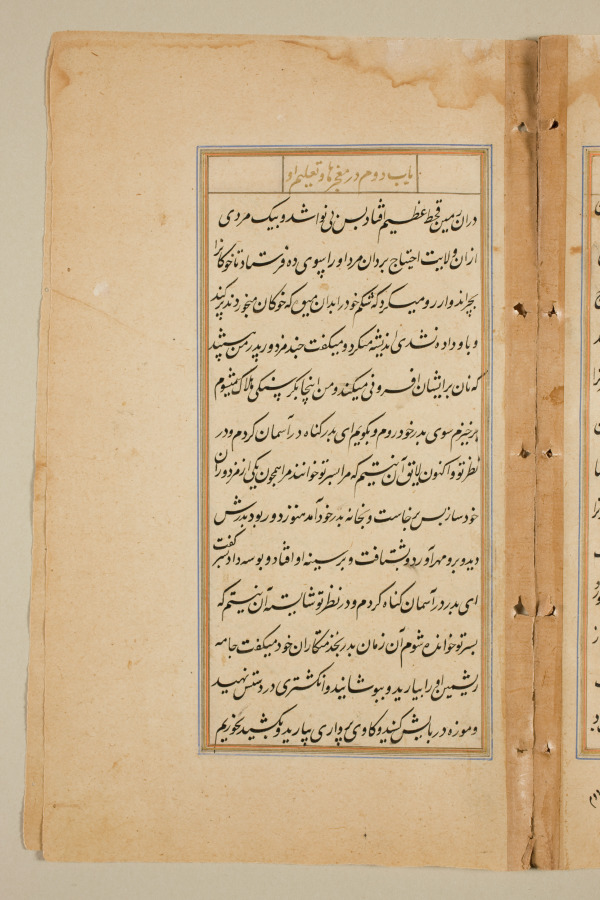 باب دوم در معجزها و تعلیم او
دران زمین قحط عظیم افتاد پس بی نوا شد و بیک مردی
ازان ولایت احتیاج برد ان مرد او را بسوی ده فرستاد تا خوکانرا
بچراند و ارزو میکرد که شکم خود را بدان که خوکان میخوردند پر کند
و باو داده نشدی اندیشه میکرد و میکفت چند مزدور پدر من هستند
که نان برایشان افزونی میکند و من اینجا بکرسنکی هلاک میشوم
برخیزم سوی پدر خود روم و بکویم ای پدر کناه در آسمان کردم و در
نظر تو و اکنون لایق آن نیستم که مرا پسر تو خوانند مرا همچون یکی از مزدوران
خود ساز پس برخاست و بخانه پدر خود آمد هنوز دور بود پدرش
دید و برو مهر آورد و بشتافت و بر سینه او افتاد و بوسه داد پسر گفت
ای پدر در آسمان کناه کردم و در نظر تو شایسته آن نیستم که
پسر تو خوانده شوم آن زمان پدر بخدمتکاران خود میکفت جامه
ریشمین او را بیارید و بپوشانید و انکشتری در دستش نهید
و موزه در پایش کنید و کاوی پرواری بیارید و بکشید بخوریم